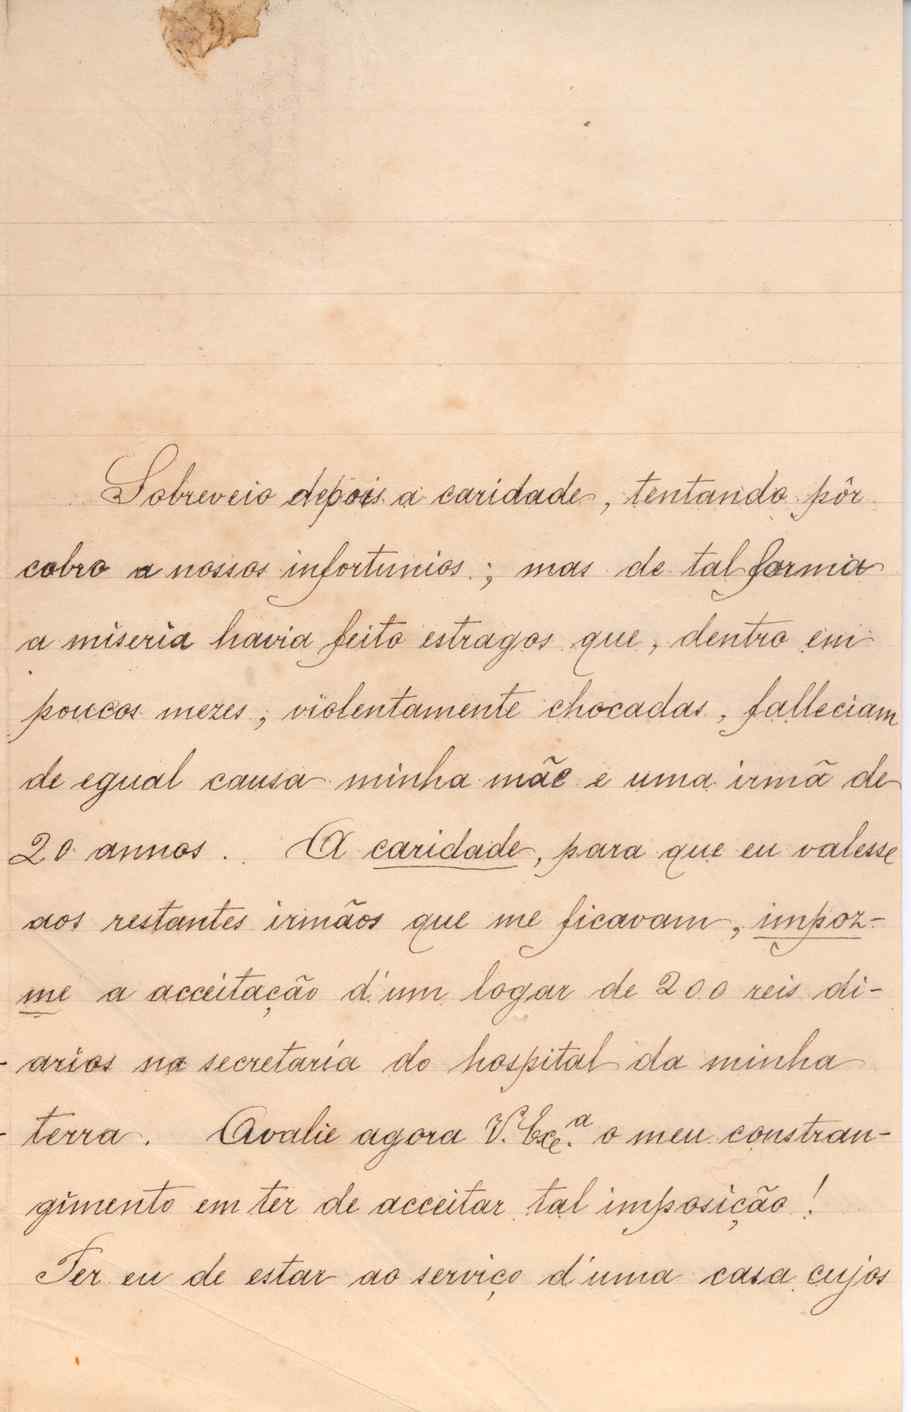 Sobreveio depois a caridade, tentando pôr
cobro a nossos infortunios; mas de tal forma
a miseria havia feito estragos que, dentro em
poucos mezes, violentamente chocadas, falleciam
de egual causa minha mãe e uma irmã de
20 annos. . A caridade, para que eu valesse
aos restantes irmãos que me ficavam, impoz-
me a acceitação d'um logar de 200 reis di-
arios na secretaría do hospital da minha
terra. Avalie agora V. Exc.ª o meu constran-
gimento em ter de acceitar tal imposição!
Ter eu de estar ao serviço d'uma casa cujos